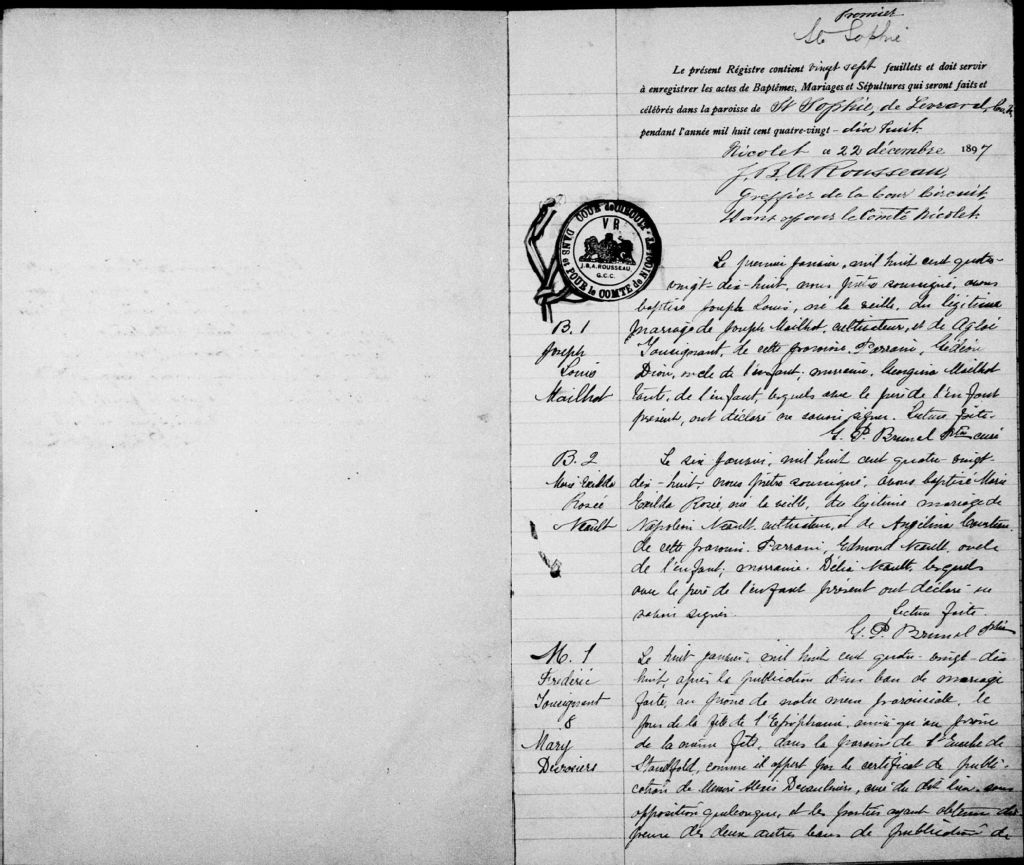 Premier
Ste Sophie
Le présent Régistre contient vingt sept feuillets et doit servir
à enregistrer les actes de Baptêmes, Mariages et Sépultures qui seront faits et
célébrés dans la paroisse de Ste Sophie, de Levrard,
pendant l'année mil huit cent quatre-vingt - dix huit
Nicolet ce 22 décembre 1897
J. B. A. Rousseau,
Greffier de la Cour Circuit,
dans & pour le Comté Nicolet.
COUR de CIRCUIT
DANS et POUR le COMTE de NICOLET
VR
J.B.A. ROUSSEAU
G.C.C.
Le premier janvier, mil huit cent quatre-
vingt-dix-huit, nous prêtre soussigné, avons
baptisé Joseph Louis, né la veille, du légitime
B. 1 mariage de Joseph Mailhot, cultivateur, et de Agloé
Joseph Tousignant, de cette paroisse. Parrain, Gédéon
Louis Dion, oncle de l'enfant, marraine, Georgina Mailhot
Mailhot tante, de l'enfant, lesquels avec le père de l'enfant
présent, ont déclaré ne savoir signer. Lecture faite.
G. P. Brunel ptre curé
B. 2 Le six janvier, mil huit cent quatre-vingt-
Marie Exilda dix-huit, nous prêtre soussigné, avons baptisé Marie
Rosée Exilda Rosée, née la veille, du légitime mariage de
Neault Napoléon Neault cultivateur, et de Angélina
de cette paroisse. Parrain, Edmond Neault, oncle
de l'enfant; marraine. Délia Neault, lesquels
avec le père de l'enfant présent ont déclaré ne
savoir signer. Lecture faite.
G. P. Brunel ptre
M. 1 Le huit janvier, mil huit cent quatre-vingt-dix
Frédéric huit, après la publication d'un ban de mariage
Tousignant faite, au prône de notre messe paroissiale, le
& jour de la fête de l'Epiphanie, ainsi qu'au prône
Mary de la même fête, dans la paroisse de St Eusèbe de
Désrosiers Standfold, comme il appert par le certificat de publi-
cation de Messire Alexis Desaulniers, curé du dit lieu, sans
opposition quelconque, et les parties ayant obtenu dis-
pense des deux autres bans de publication de